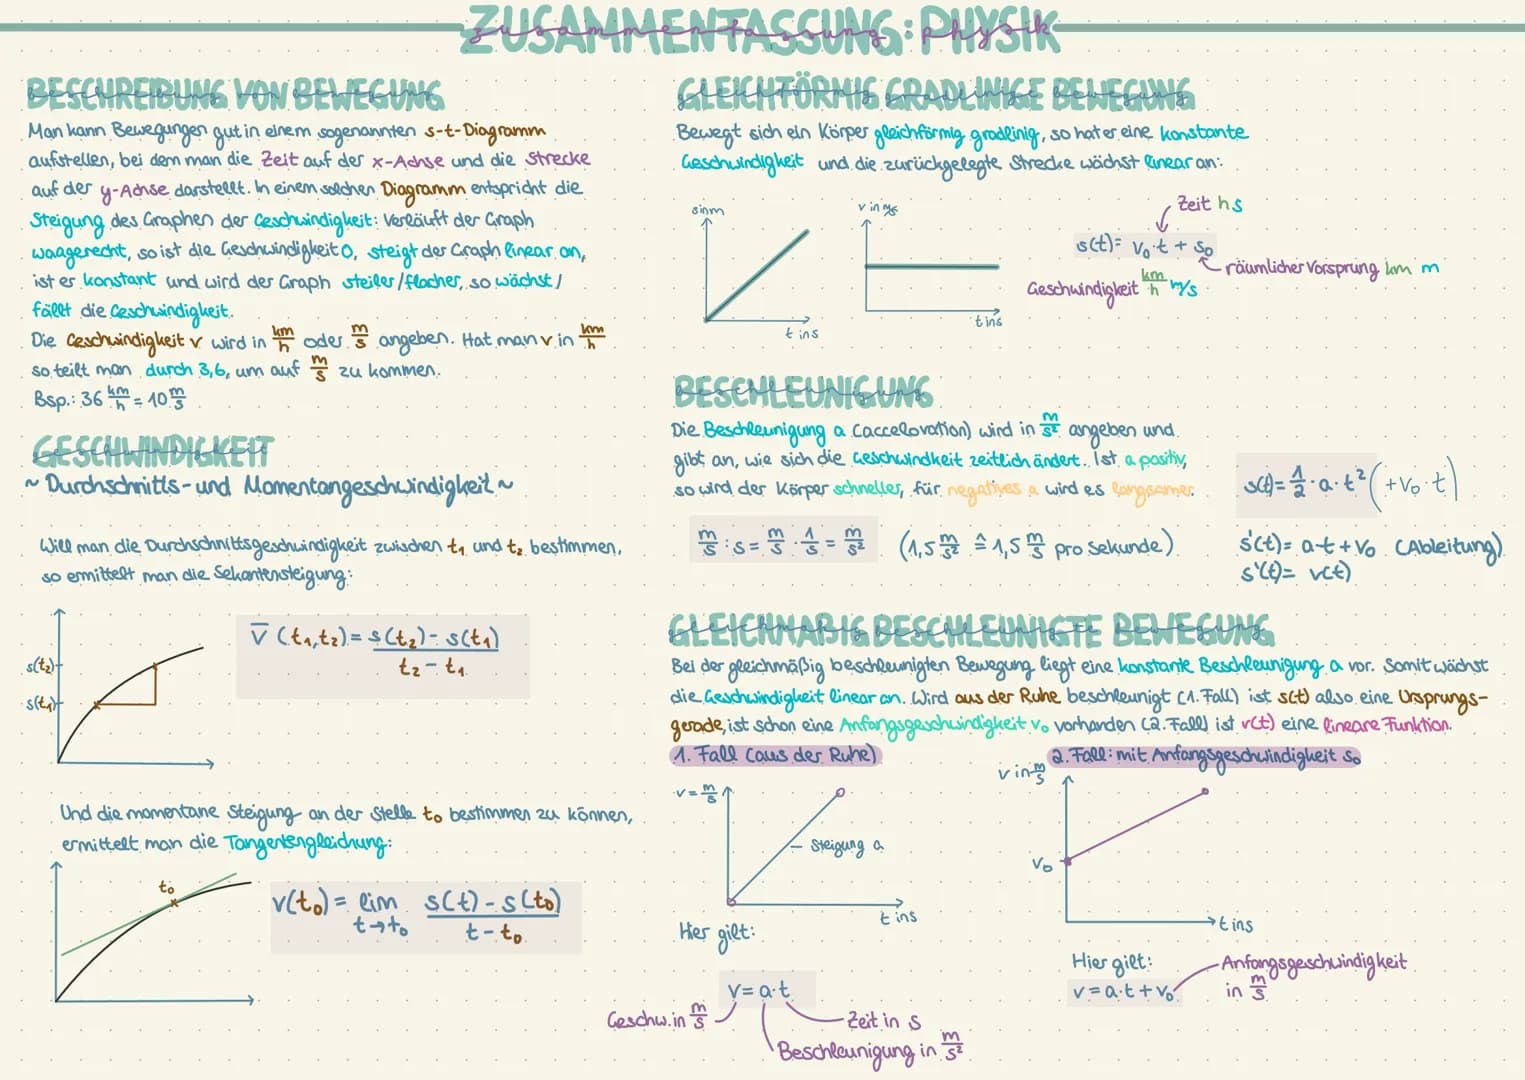 ZUSAMMENFASSUNG: PHYSIK
BESCHREIBUNG VON BEWEGUNG
Man kann Bewegungen gut in einem sogenannten s-t-Diagramm
aufstellen, bei dem man die Zeit auf der x-Achse und die Strecke
auf der y-Achse darstellt. In einem solchen Diagramm entspricht die
Steigung des Graphen der Geschwindigkeit: Verläuft der Graph
waagerecht, so ist die Geschwindigkeit 0, steigt der Graph linear an,
ist er konstant und wird der Graph steiler/flacher, so wächst/
fällt die Geschwindigkeit.
Die Geschwindigkeit v wird in km/h oder m/s angeben. Hat man v in km/h
so teilt man durch 3,6, um auf m/s zu kommen.
Bsp.: 36 km/h = 10 m/s
GESCHWINDIGKEIT
~ Durchschnitts- und Momentangeschwindigkeit ~
Will man die Durchschnittsgeschwindigkeit zwischen t₁ und t₂ bestimmen,
so ermittelt man die Sekantensteigung:
s(t₂)
s(t₁)
v̅ (t₁,t₂) = s(t₂) - s(t₁)
t₂ - t₁
Und die momentane Steigung an der Stelle t₀ bestimmen zu können,
ermittelt man die Tangentengleichung:
t₀
v(t₀) = lim s(t) - s(t₀)
t→t₀ t - t₀
GLEICHFÖRMIG GRADLINIGE BEWEGUNG
Bewegt sich ein Körper gleichförmig gradlinig, so hat er eine konstante
Geschwindigkeit und die zurückgelegte Strecke wächst linear an:
s in m
t in s
v in m/s
t in s
Zeit h s
s(t) = v₀·t + s₀
räumlicher Vorsprung km m
Geschwindigkeit km/h m/s
BESCHLEUNIGUNG
Die Beschleunigung a (accelovation) wird in m/s² angeben und
gibt an, wie sich die Geschwindkeit zeitlich ändert. Ist a positiv,
so wird der Körper schneller, für negatives a wird es langsamer.
m/s : s = m/s · 1/s = m/s² (1,5 m/s² ≙ 1,5 m/s pro Sekunde)
s(t) = 1/2 · a · t² (+v₀ · t)
s'(t) = a·t + v₀ (Ableitung)
s'(t) = v(t)
GLEICHMÄẞIG BESCHLEUNIGTE BEWEGUNG
Bei der gleichmäßig beschleunigten Bewegung liegt eine konstante Beschleunigung a vor. Somit wächst
die Geschwindigkeit linear an. Wird aus der Ruhe beschleunigt (1. Fall) ist s(t) also eine Ursprungs-
gerade, ist schon eine Anfangsgeschwindigkeit v₀ vorhanden (2. Fall) ist v(t) eine lineare Funktion.
1. Fall (aus der Ruhe)
v = m/s
Steigung a
t in s
Hier gilt:
v = a·t
Geschw. in m/s
Zeit in s
Beschleunigung in m/s²
2. Fall: mit Anfangsgeschwindigkeit s₀
v in m/s
v₀
t in s
Hier gilt:
v = a·t + v₀
Anfangsgeschwindigkeit
in m/s